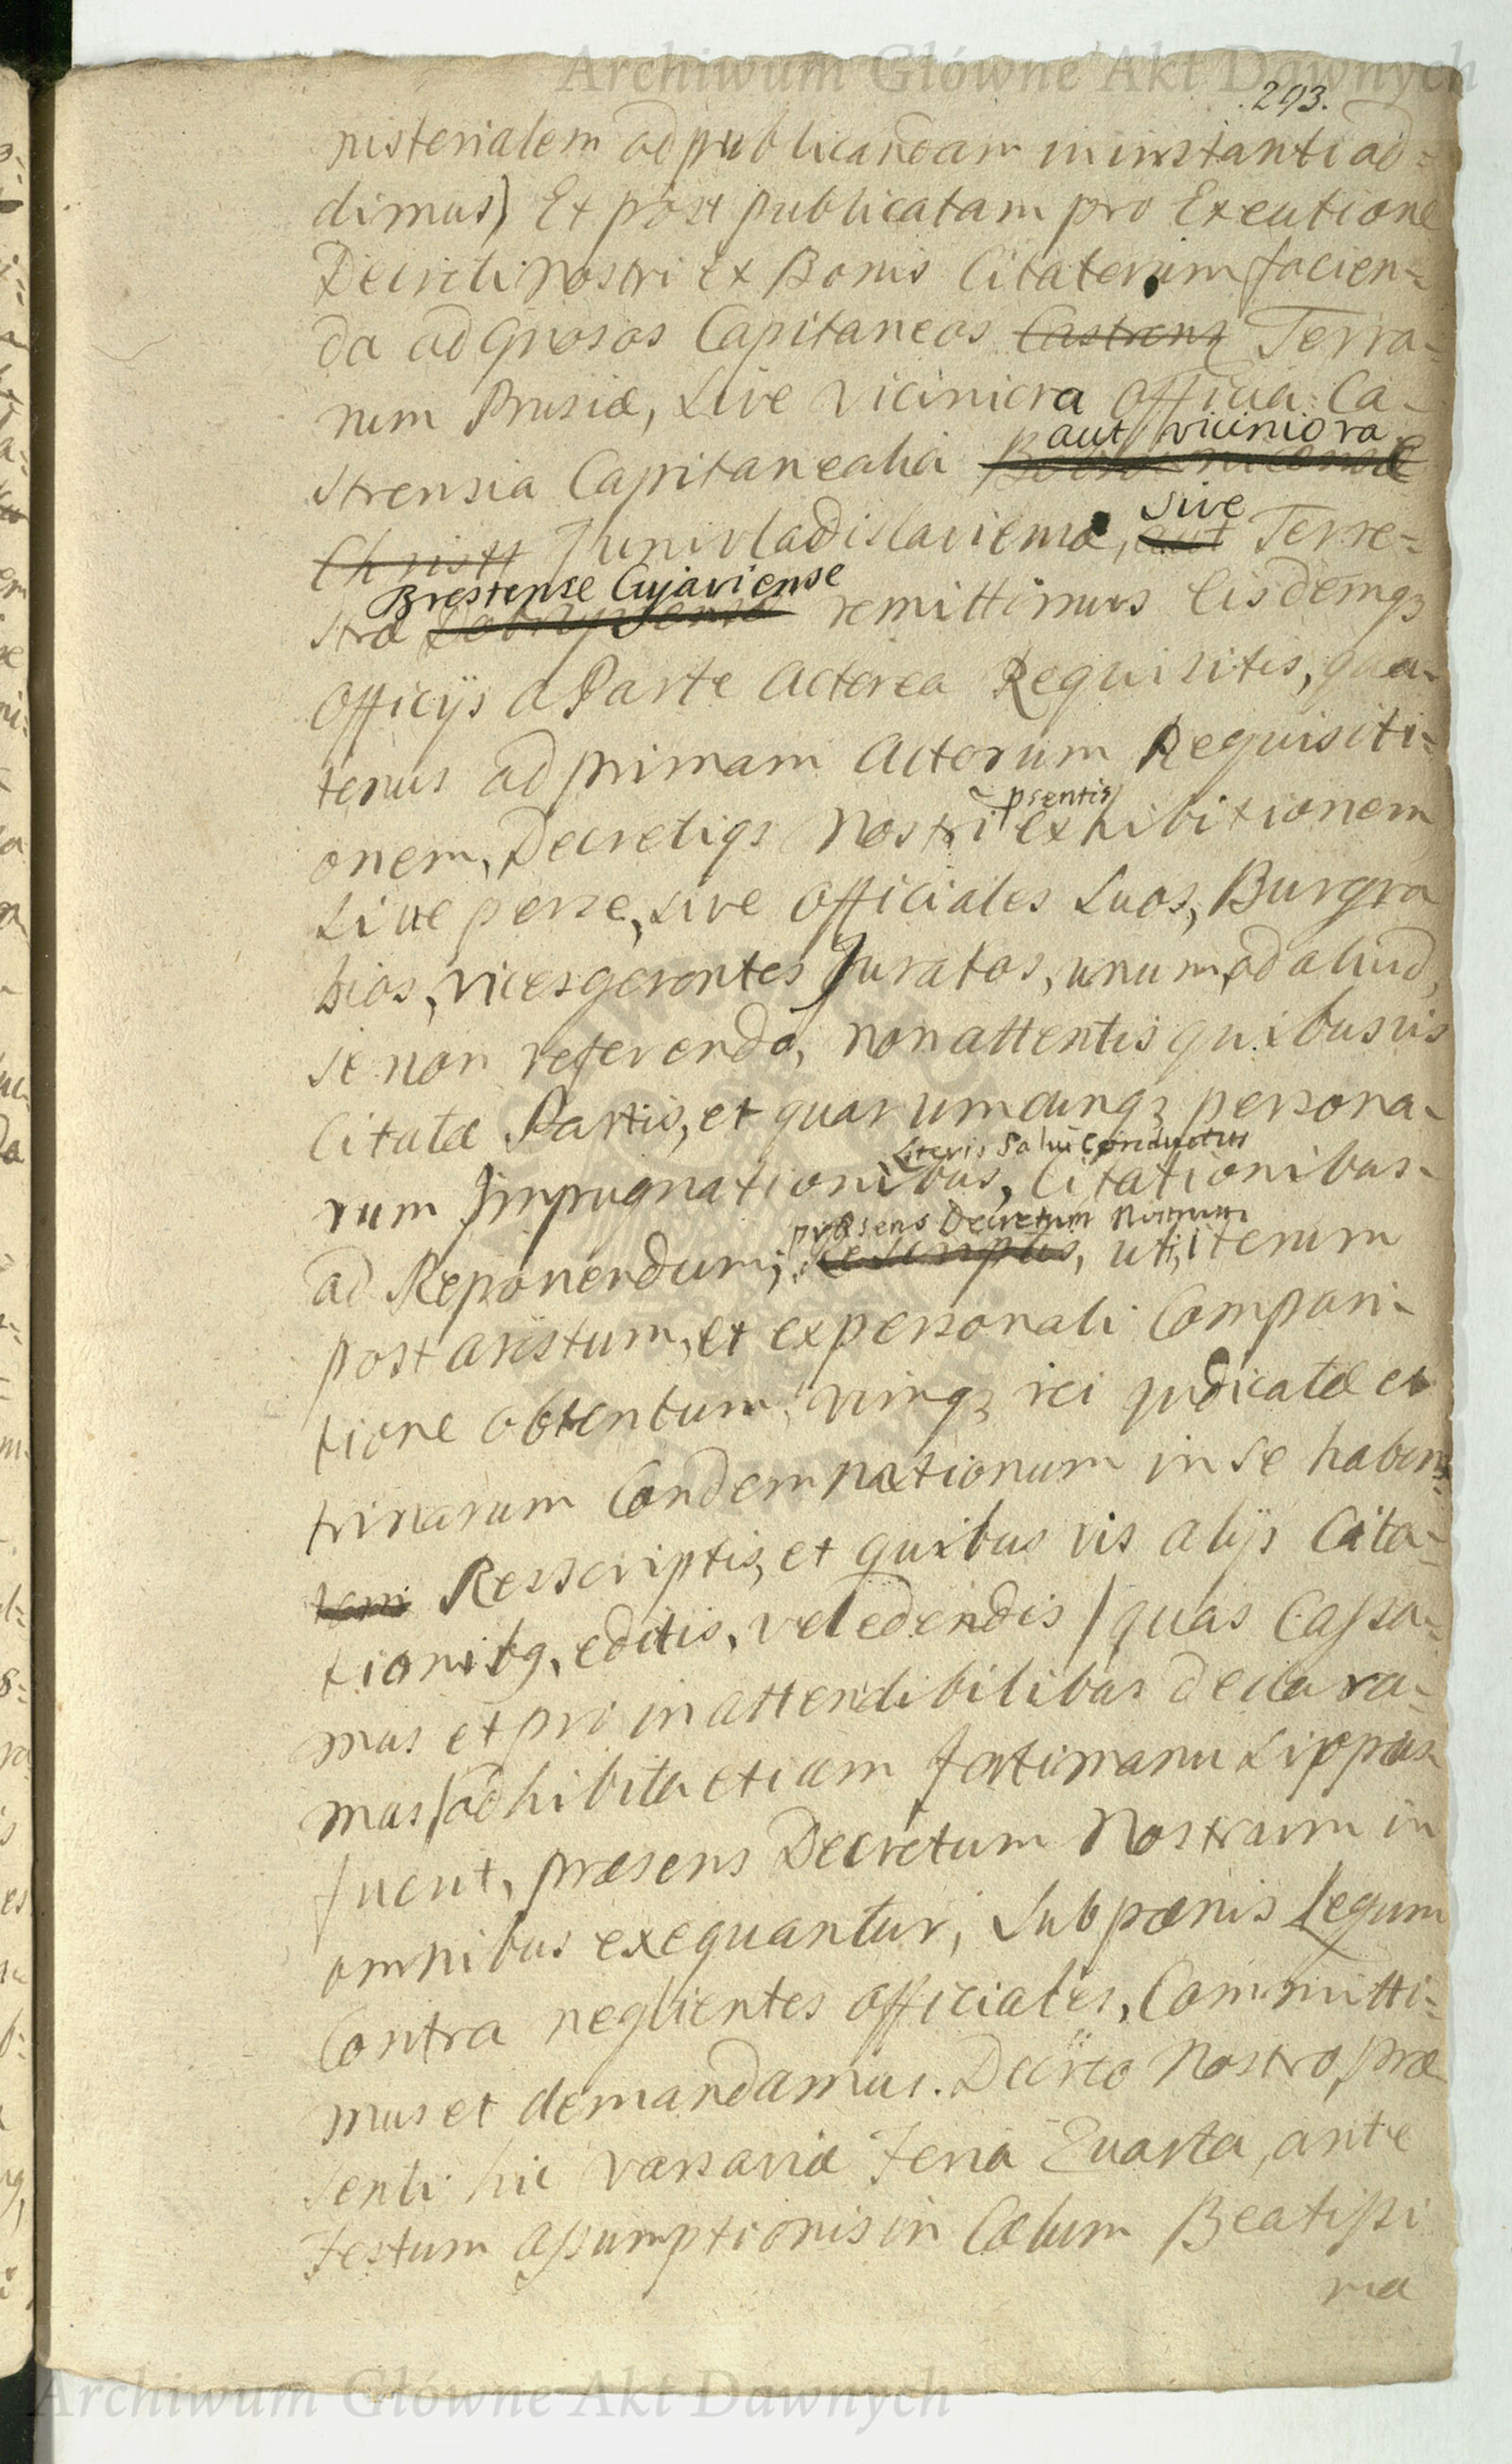 Archiwum Główne Akt Dawnych
293.
nisterialem ad publicandam in instanti ad=
dimus) Et post publicatam pro Executione
Decreti nostri ex Bonis Citatorum facien=
da ad Grosos Capitaneos Castrens Terra=
rum Prusiæ, sive viciniora Officia Ca=
aut viciniora
strensia Capitanealia
sive
Christi Junivladislaviense, aut Terre=
Brestense Cujaviense
stræ remittimus Eisdemq3
Officijs a Parte Actorea Requisitis, qua=
tenus ad primam Actorum Requisiti=
psentis
onem, Decretiq3 Nostri exhibitionem
sive per se, sive Officiales suos, Burgra
bios, vicesgerentes Juratos, unum ad aliud,
se non referendo, non attentis quibusvis
Citatæ Partis, et quarumcunq3 persona=
Literis Salvi Conductus
rum Impugnationibus, Citationibus=
præsens Decretum Nostrum
ad Reponendum; Rescriptis, uti, iterum
post arestum, et ex personali Compari=
tione obtentum, vimq3 rei judicatæ et
trinarum Condemnationum in se haben=
tem Resscriptis, et quibus vis alijs Cita=
tionibq, editis, vel edendis /quas Cassa=
mus et pro inattendibilibus declara=
mus/ adhibita etiam forti manu si opus
fuerit, præsens Decretum Nostrum in
omnibus exequantur, sub pœnis Legum
Contra neglientes Officiales, Committi=
mus et demandamus. Decreto Nostro, præ
senti hic Varsaviæ Feria Quarta, ante
Festum Assumptionis in Cœlum Beatissi
mæ
Archiwum Główne Akt Dawnych